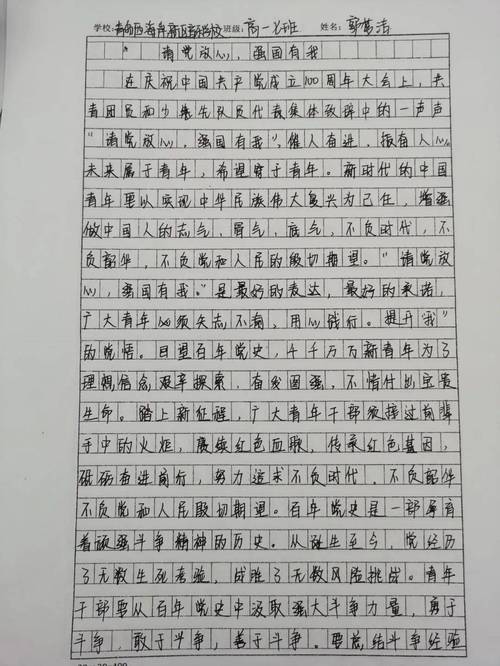 学校:青岛西海岸新区实验学校 班级:高一 班 姓名:郭
"请党放心,强国有我
在庆祝中国共产党成立100周年大会上,共
青团员和少先队员代表集体致辞中的一声声
"请党放心,强国有我",催人奋进,振奋人心
未来属于青年,希望寄于青年。新时代的中国
青年要以实现中华民族伟大复兴为己任,增强
做中国人的志气,骨气,底气,不负时代,不
负韶华,不负党和人民的殷切期望。"请党放
心,强国有我。"是最好的表达,最好的承诺,
广大青年必须矢志不渝,用心践行。提升"我"
的觉悟。回望百年党史,千千万万新青年为了
理想信念艰辛探索,奋发图强,不惜付出宝贵
生命。踏上新征程,广大青年干部须接过前辈
手中的火炬,赓续红色血脉,传承红色基因,
砥砺奋进前行,努力追求不负时代,不负韶华
不负党和人民殷切期望。百年党史是一部
着顽强斗争精神的历史。从诞生至今,党经历
了无数生死考验,战胜了无数风险挑战。青年
干部要从百年党史中汲取强大斗争力量,勇于
斗争,敢于斗争,善于斗争。要总结斗争经验